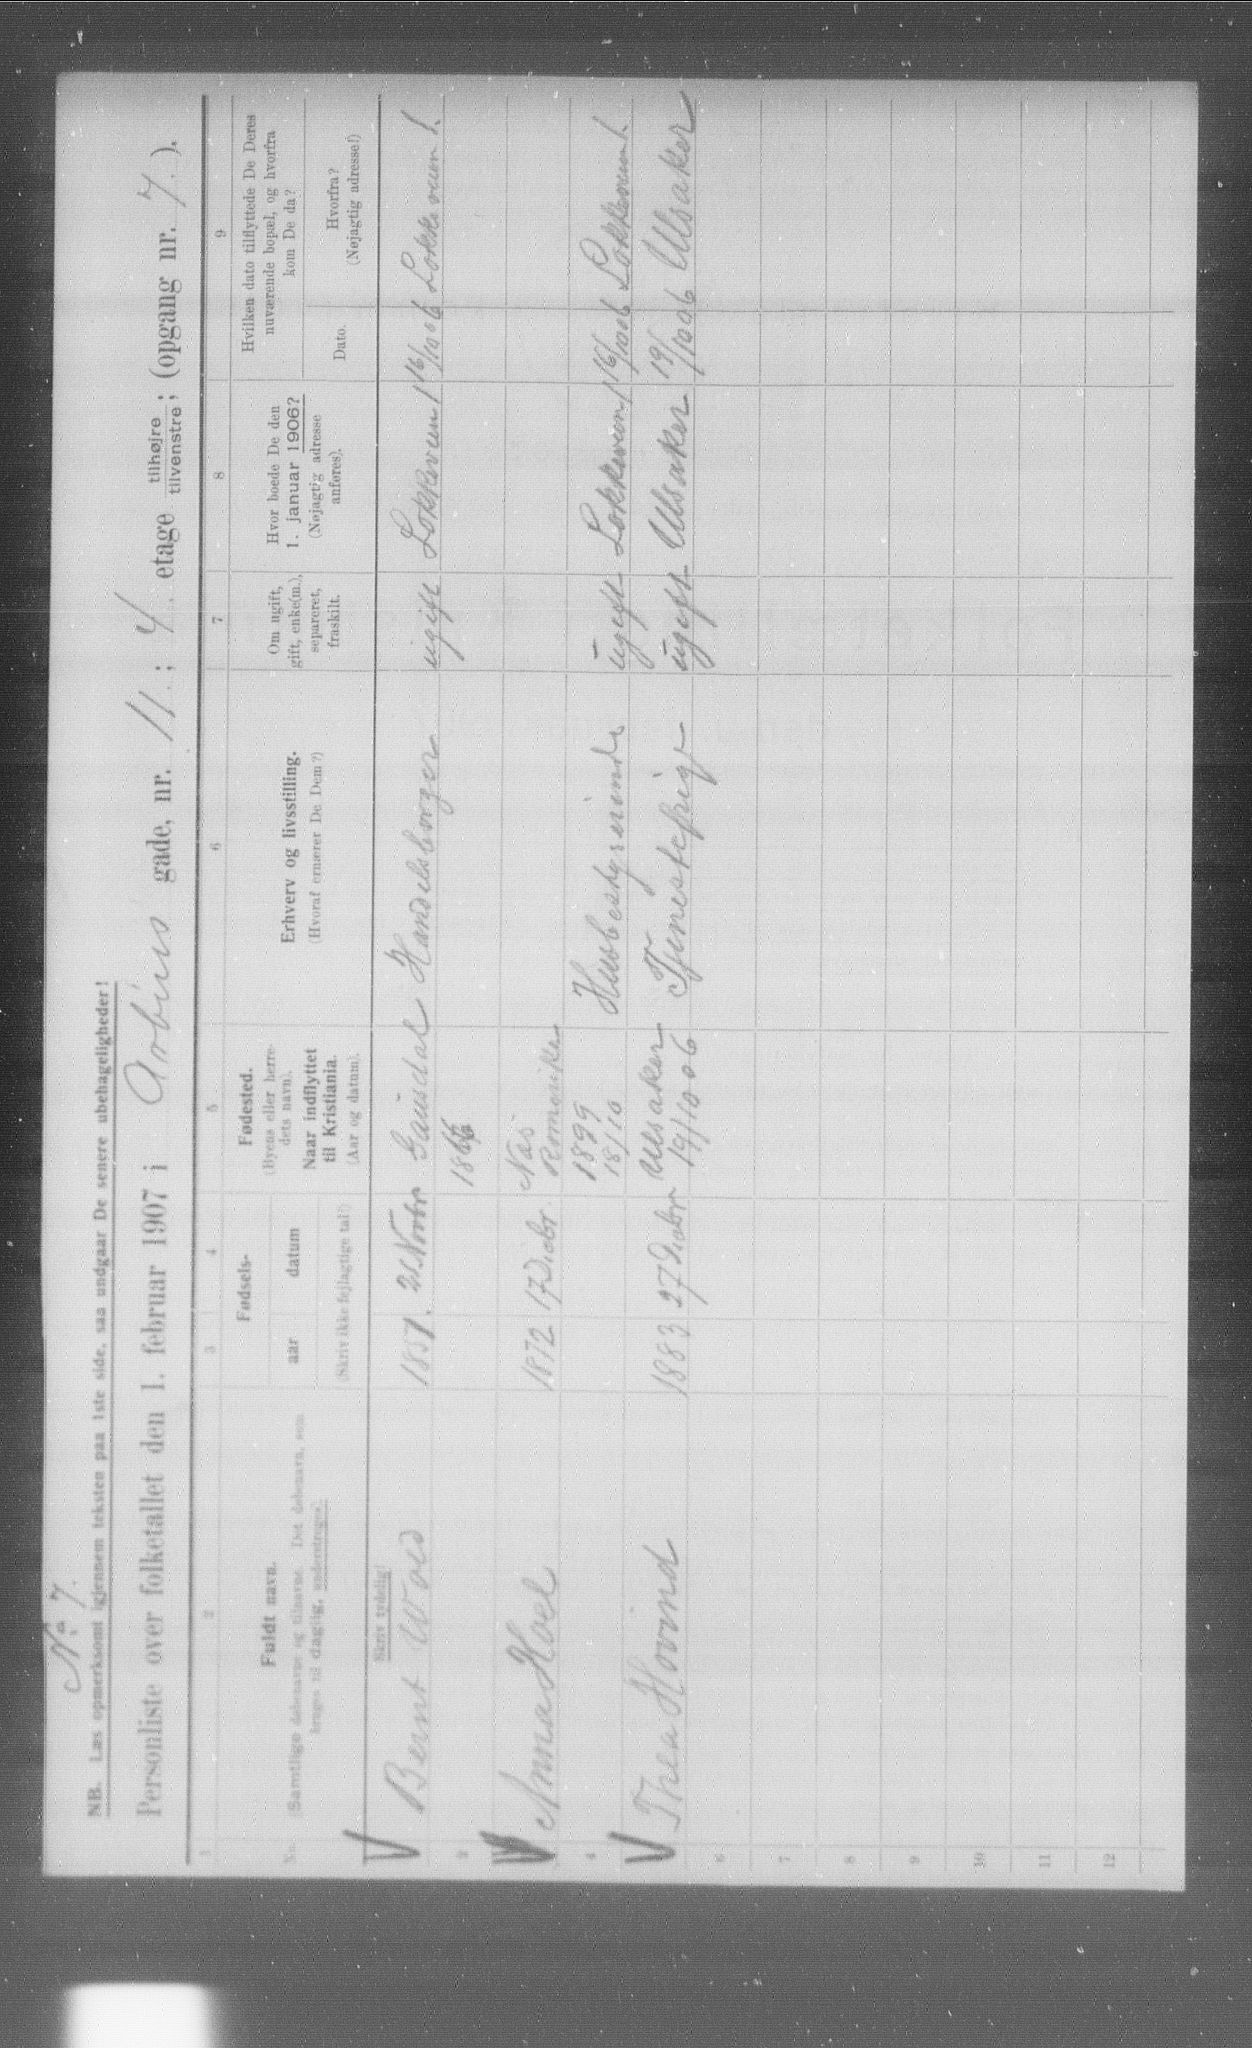 No 7.
NB. Læs opmerksomt igjennem teksten paa 1ste side, saa undgaar De senere ubehageligheder!
Personliste over folketallet den 1. februar 1907 i Arbins gade, nr. 11.; 4 etage tilhøjre / tilvenstre; (opgang nr. 7.).
1 2 3 4 5 6 7 8 9
No.
Fuldt navn.
(Samtlige døbenavne og tilnavne. Det døbenavn, som
bruges til daglig, understreges.)
Fødsels-
aar datum
(Skriv ikke fejlagtige tal!)
Fødested.
(Byens eller herre-
dets navn).
Naar indflyttet
til Kristiania.
(Aar og datum).
Erhverv og livsstilling.
(Hvoraf ernærer De Dem?)
Om ugift,
gift, enke(m.),
separeret,
fraskilt.
Hvor boede De den
1. januar 1906?
(Nøjagtig adresse
anføres).
Hvilken dato tilflyttede De Deres
nuværende bopæl, og hvorfra
kom De da?
Dato.
Hvorfra?
(Nøjagtig adresse!)
Skriv tydelig!
Bernt Wold 1851. 21 Novbr Gausdal Handelsborger ugift Løkkeveien 1 16/10 06 Løkkeveien 1.
2
Anna Hoel 1872 17 Decbr. Næs
Romerike
4 1899 Husbestyrerinde ugift Løkkeveien 1 16/10 06 Løkkeveien 1.
18/10
Thea Hovind 1883 27 Decbr Ullsaker Tjenestepige ugift Ullsaker 19/10 06 Ullsaker
19/10 06
6
7
8
9
10
11
12